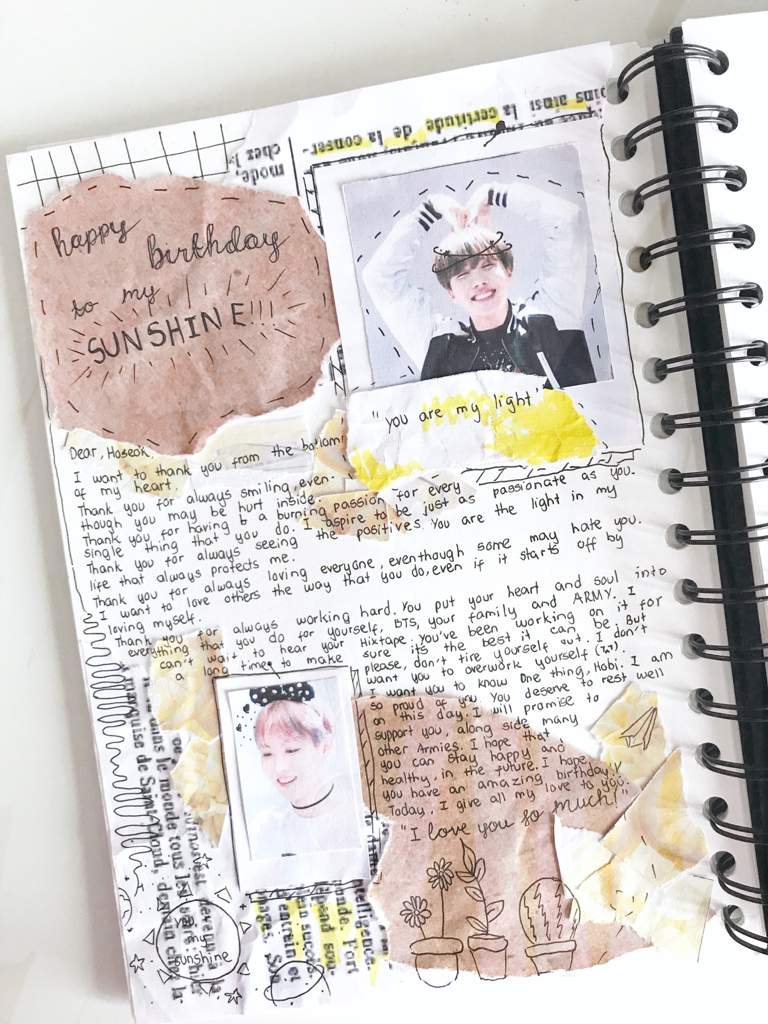 happy
birthday
to my
SUNSHINE!!!
mode,
chez l
la certitude de la conser-
"you are my light"
Dear, Hoseok,
I want to thank you from the bottom
of my heart.
Thank you for always smiling, even
though you may be hurt inside.
Thank you for having a burning passion for every
single thing that you do. I aspire to be just as passionate as you.
Thank you for always seeing the positives. You are the light in my
life that always protects me.
Thank you for always loving everyone, eventhough some may hate you.
I want to love others the way that you do, even if it starts off by
loving myself.
Thank you for always working hard. You put your heart and soul into
everything that you do for yourself, BTS, your family and ARMY. I
can't wait to hear your Hixtape. You've been working on it for
a long time to make sure it's the best it can be. But
please, don't tire yourself out. I don't
want you to overwork yourself
I want you to know one thing, Hobi. I am
so proud of you. You deserve to rest well
on this day. I will promise to
support you, along side many
other Armies. I hope that
you can stay happy and
healthy, in the future. I hope
you have an amazing birthday!!
Today, I give all my love to you.
"I love you so much!"
marquise de Saint-Cloud,
dans le monde tous les
sunshine
intelligence.
entrain et